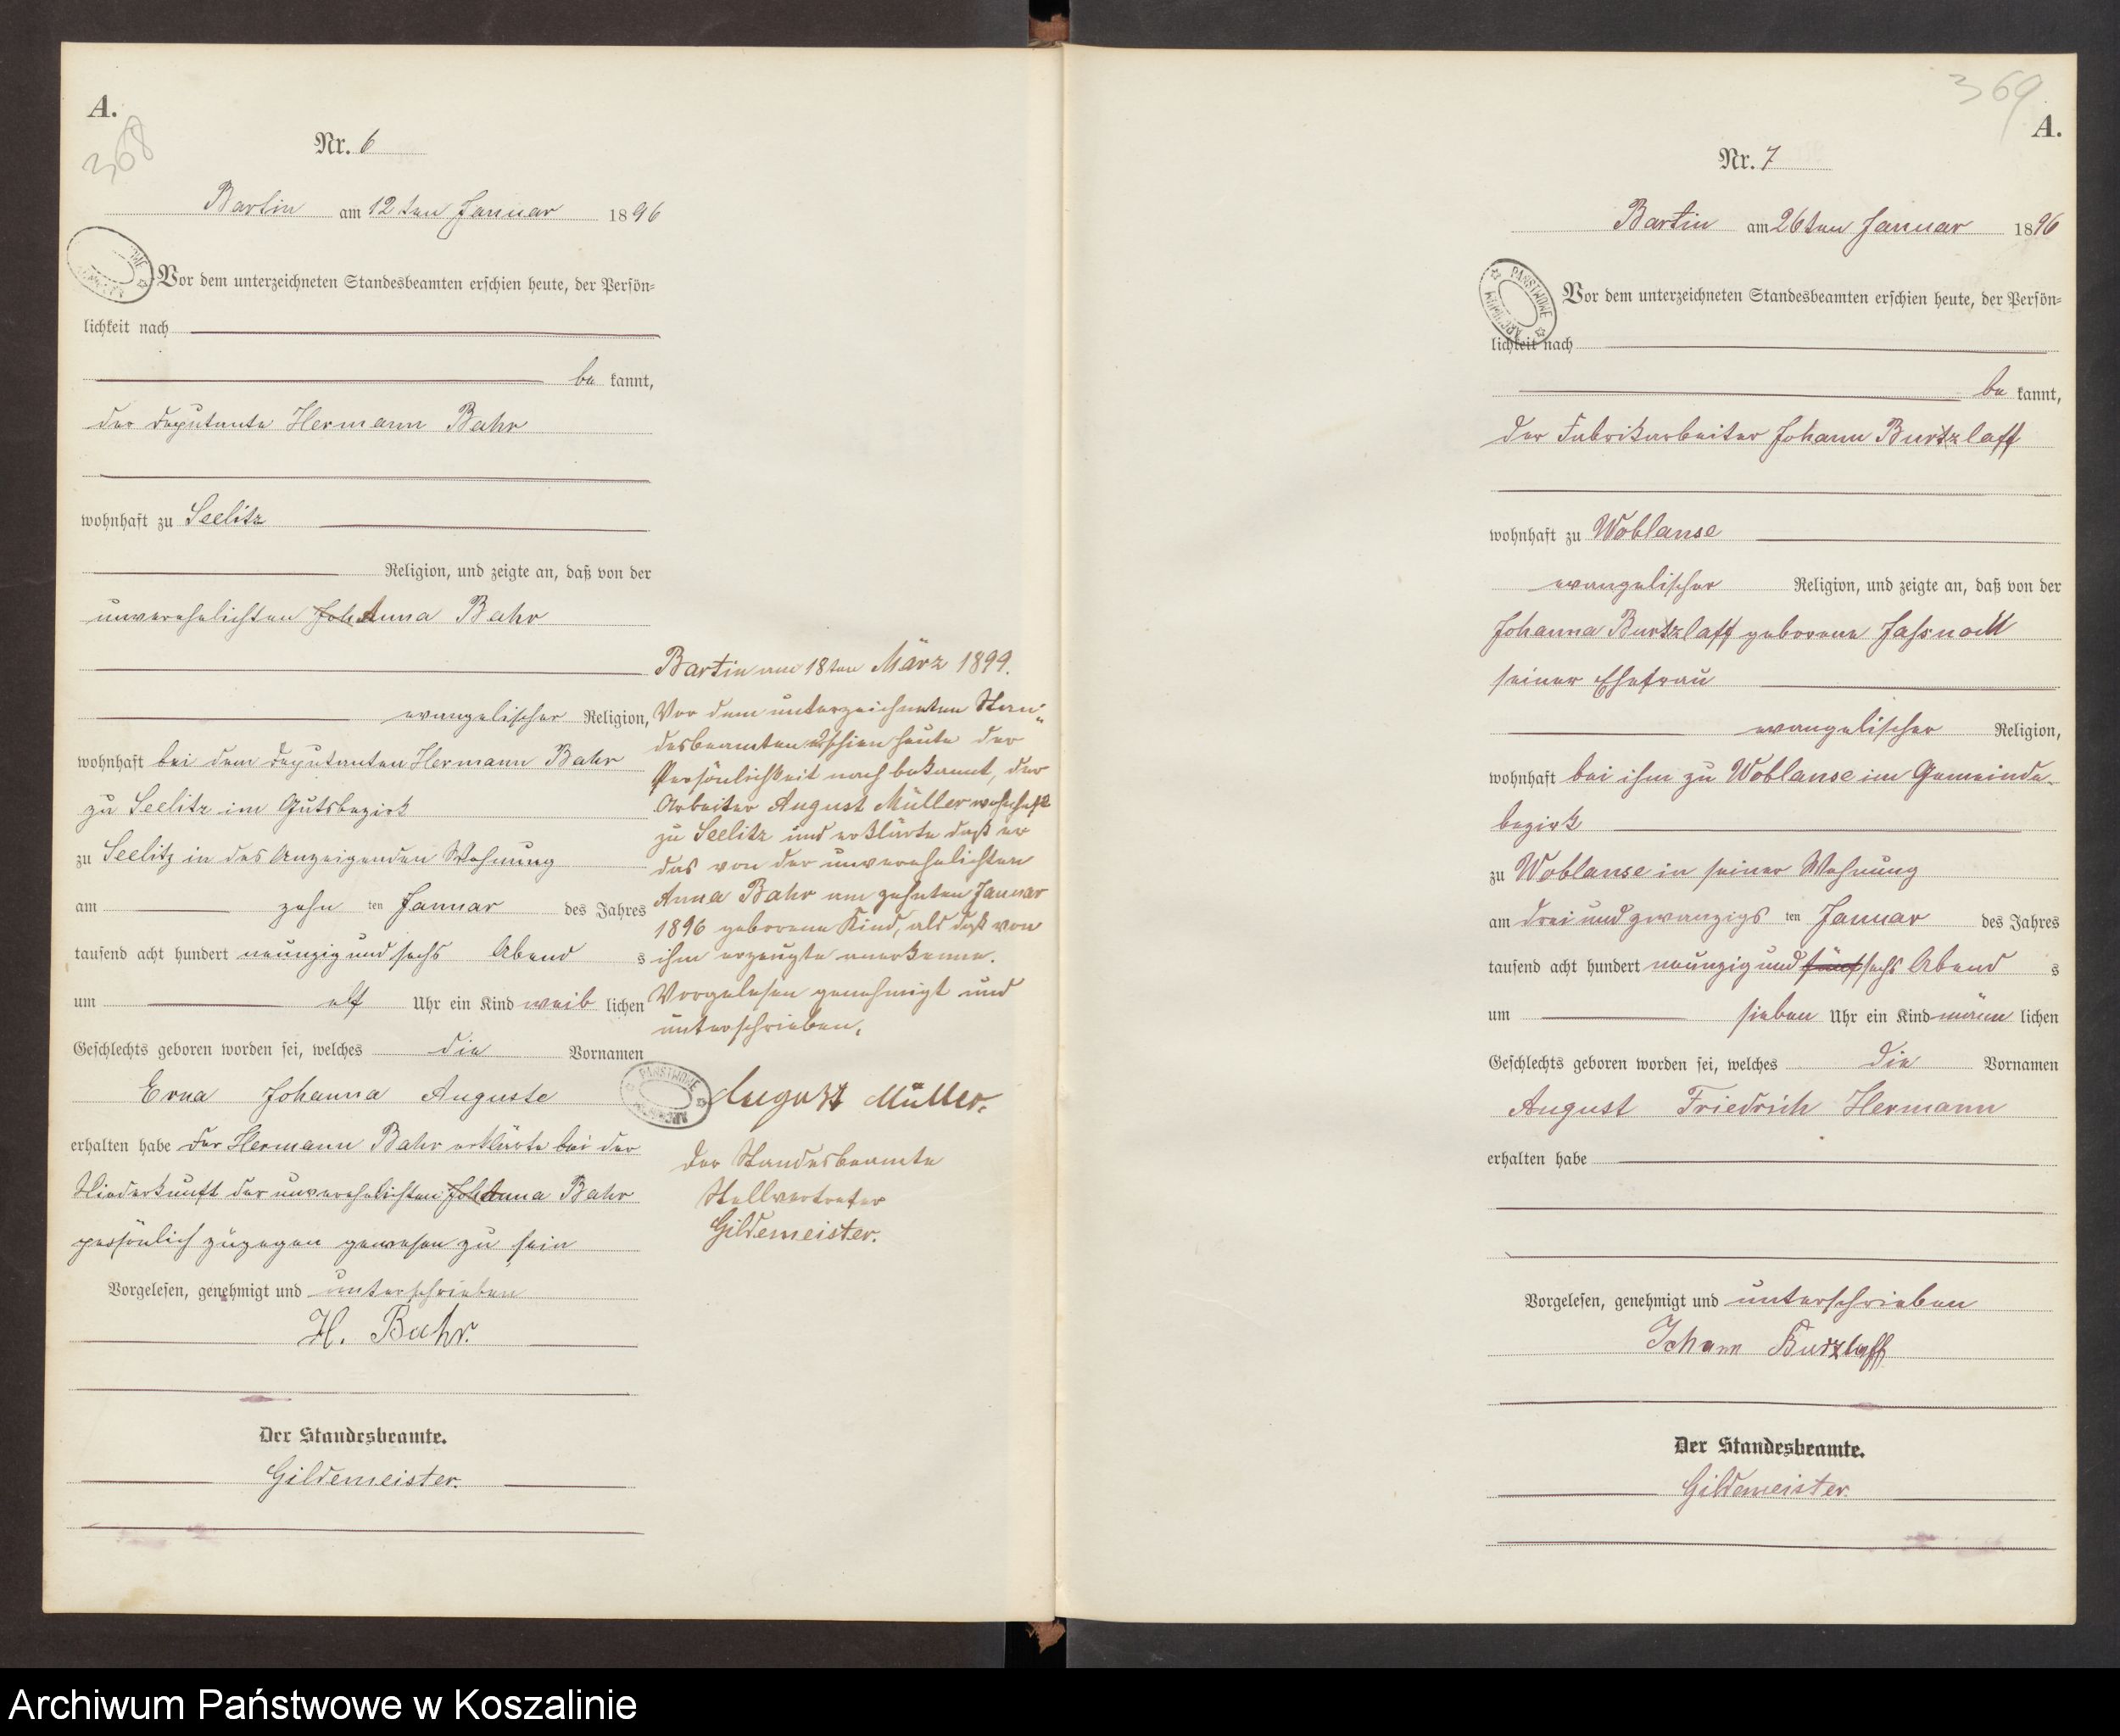 A.
368
Nr. 6
Bartin am 12ten Januar 1896
Vor dem unterzeichneten Standesbeamten erschien heute, der Persön-
lichkeit nach
be kannt,
der Deputante Hermann Bahr
wohnhaft zu Seelitz
Religion, und zeigte an, daß von der
unverehelichten Joh Anna Bahr
evangelischer Religion,
wohnhaft bei dem Deputanten Hermann Bahr
zu Seelitz im Gutsbezirk
zu Seelitz in des Anzeigenden Wohnung
am zehn ten Januar des Jahres
tausend acht hundert neunzig und sechs Abend s
um elf Uhr ein Kind weib lichen
Geschlechts geboren worden sei, welches die Vornamen
Erna Johanna Auguste
erhalten habe Der Hermann Bahr erklärte bei der
Niederkunft der unverehelichten Joh Anna Bahr
persönlich zugegen gewesen zu sein
Vorgelesen, genehmigt und unterschrieben
H. Bahr.
Der Standesbeamte.
Gildemeister.
Bartin am 18ten März 1899.
Vor dem unterzeichneten Stan-
desbeamten erschien heute der
Persönlichkeit nach bekannt, der
Arbeiter August Müller wohnhaft
zu Seelitz und erklärte daß er
das von der unverehelichten
Anna Bahr am zehnten Januar
1896 geborene Kind, als das von
ihm erzeugte anerkenne.
Vorgelesen genehmigt und
unterschrieben.
PAŃSTWOWE
August Müller.
Der Standesbeamte
Stellvertreter
Gildemeister.
369
A.
Nr. 7
Bartin am 26ten Januar 1896
PAŃSTWOWE ARCHIWUM
Vor dem unterzeichneten Standesbeamten erschien heute, der Persön-
lichkeit nach
be kannt,
der Fabrikarbeiter Johann Burtzlaff
wohnhaft zu Woblanse
evangelischer Religion, und zeigte an, daß von der
Johanna Burtzlaff geborene
seiner Ehefrau
evangelischer Religion,
wohnhaft bei ihm zu Woblanse im Gemeinde-
bezirk
zu Woblanse in seiner Wohnung
am drei und zwanzigs ten Januar des Jahres
tausend acht hundert neunzig und fünf sechs Abend s
um sieben Uhr ein Kind männ lichen
Geschlechts geboren worden sei, welches die Vornamen
August Friedrich Hermann
erhalten habe
Vorgelesen, genehmigt und unterschrieben
Johann Burzlaff
Der Standesbeamte.
Gildemeister.
Archiwum Państwowe w Koszalinie